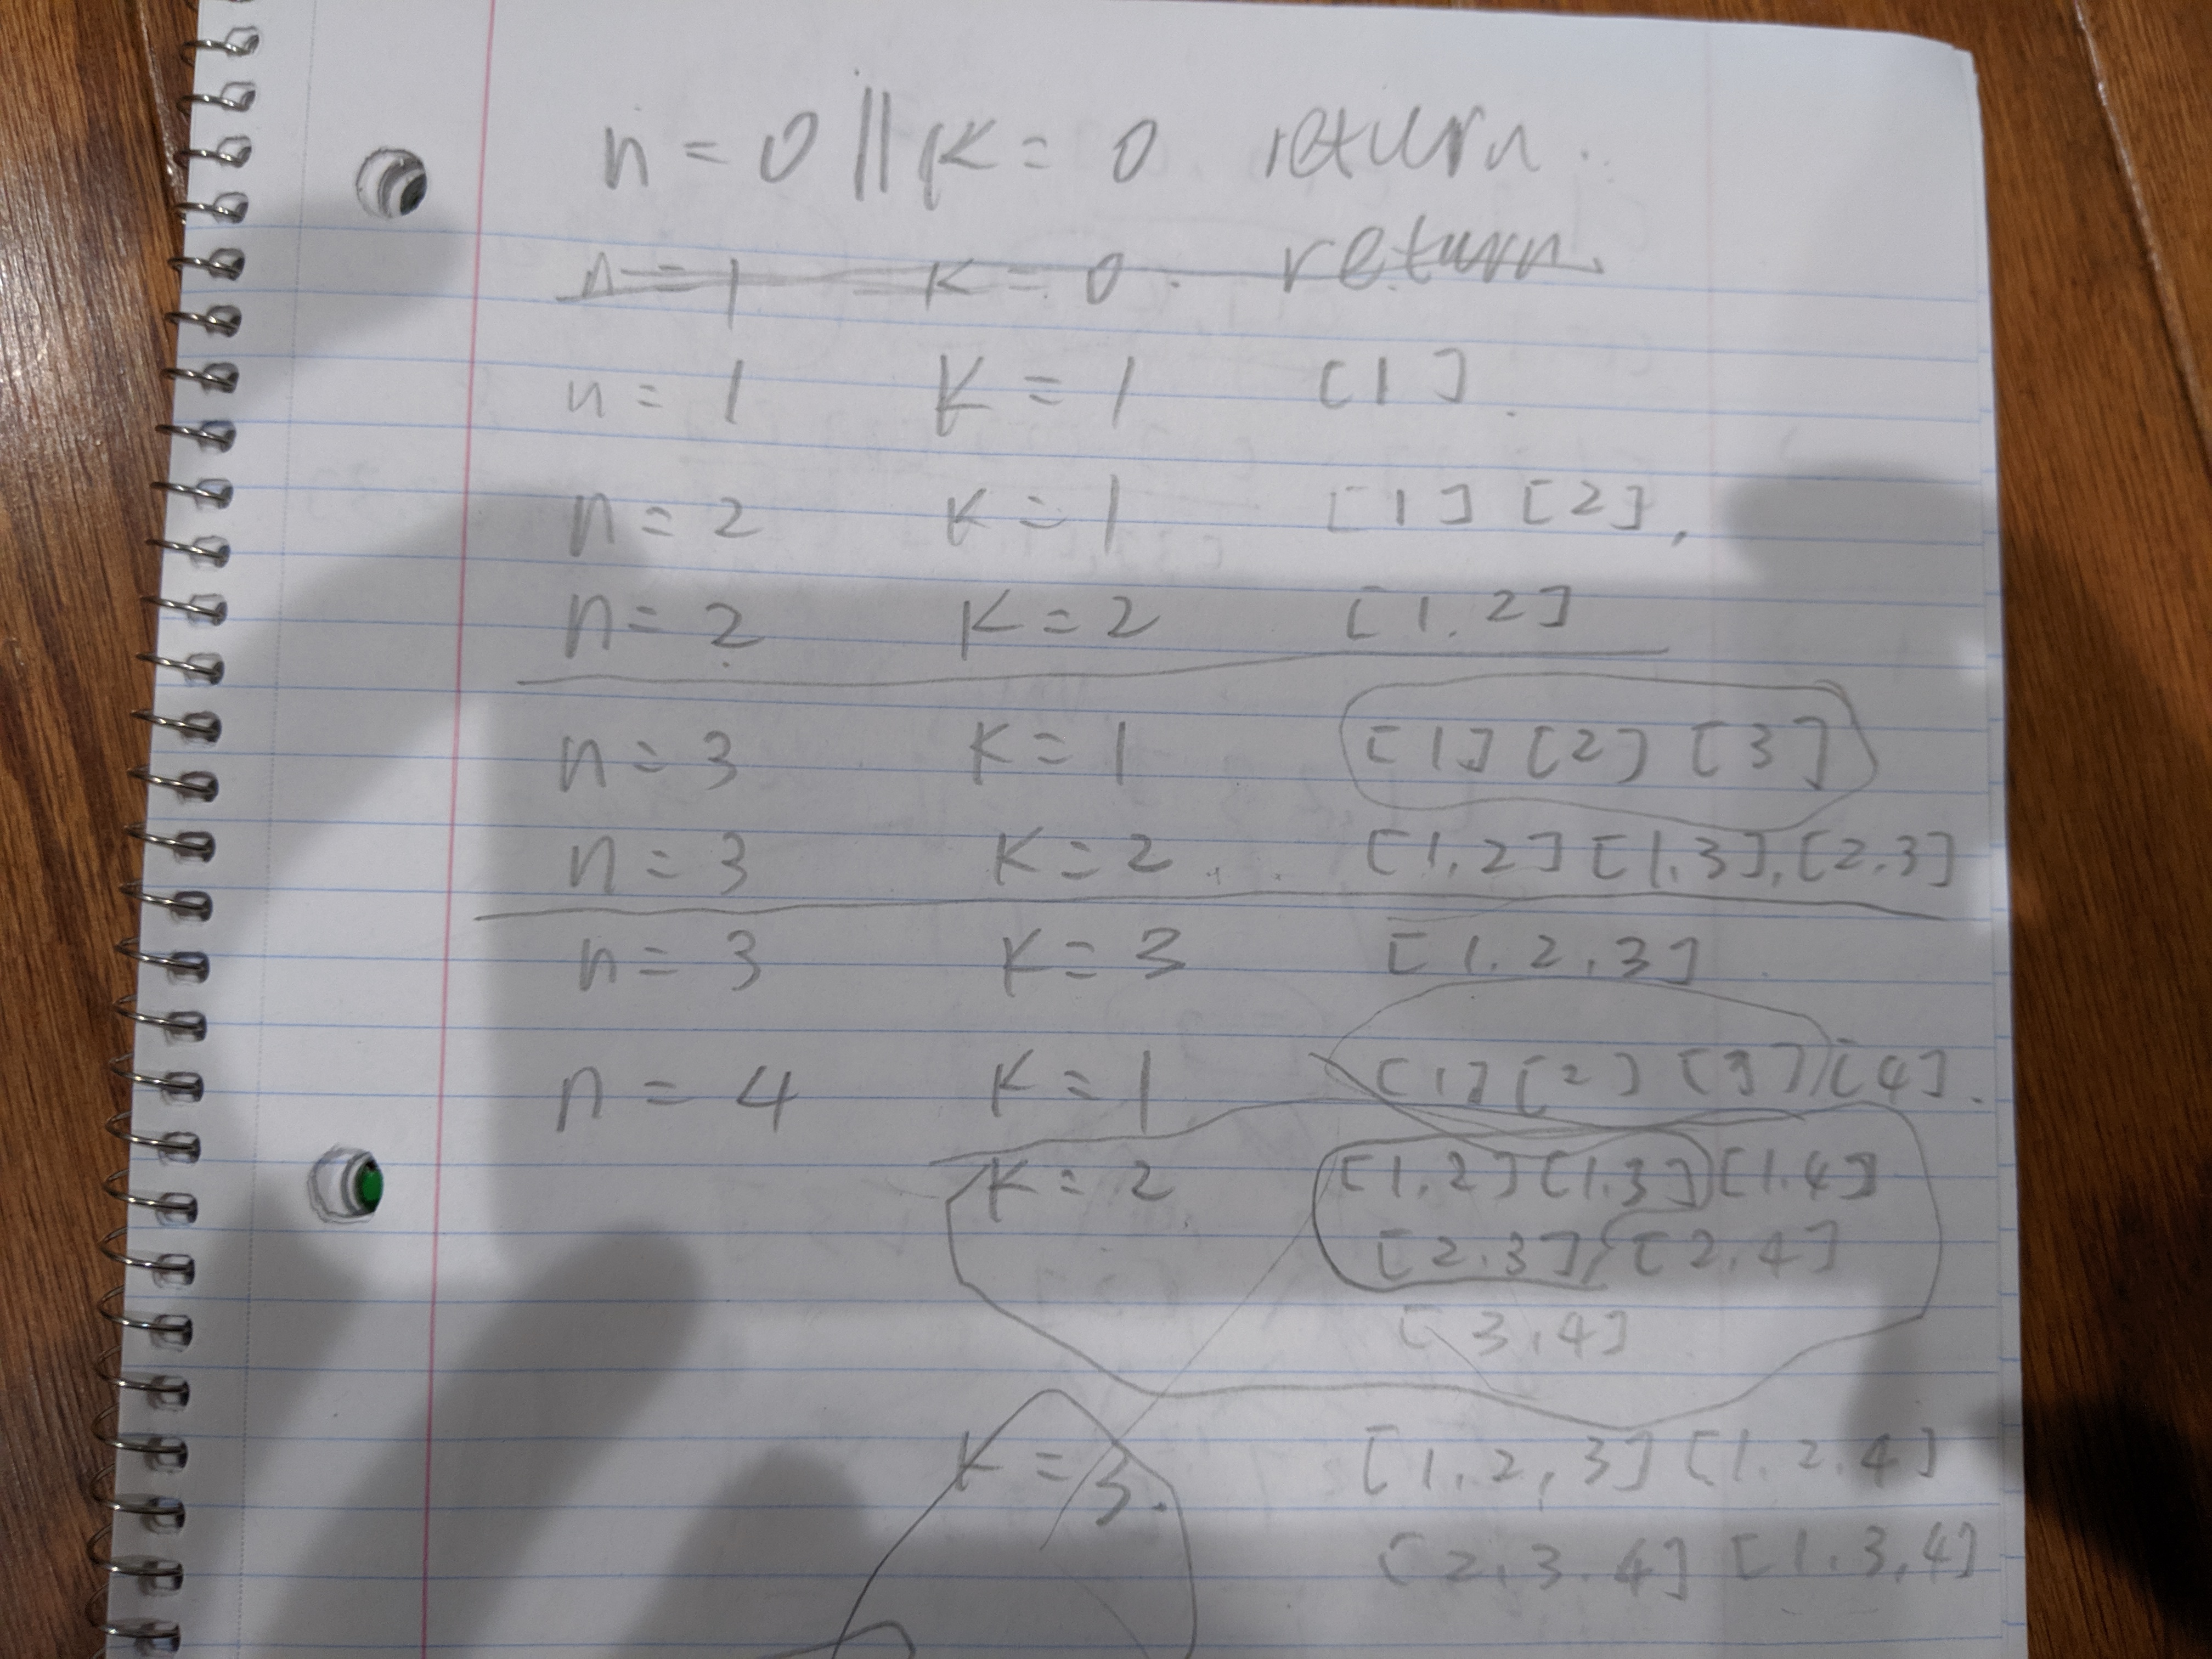 n = 0 || K = 0 return.
n = 1 K = 0. return.
n = 1 K = 1 [1].
n = 2 K = 1 [1] [2].
n = 2 K = 2 [1.2]
n = 3 K = 1 [1] [2] [3]
n = 3 K = 2.. [1.2] [1.3], [2.3]
n = 3 K = 3 [1.2,3]
n = 4 K = 1 [1] [2] [3] [4].
K = 2 [1.2] [1.3] [1.4]
[2.3] [2.4]
[3,4]
K = 3. [1.2,3] [1.2.4]
[2,3.4] [1.3,4]